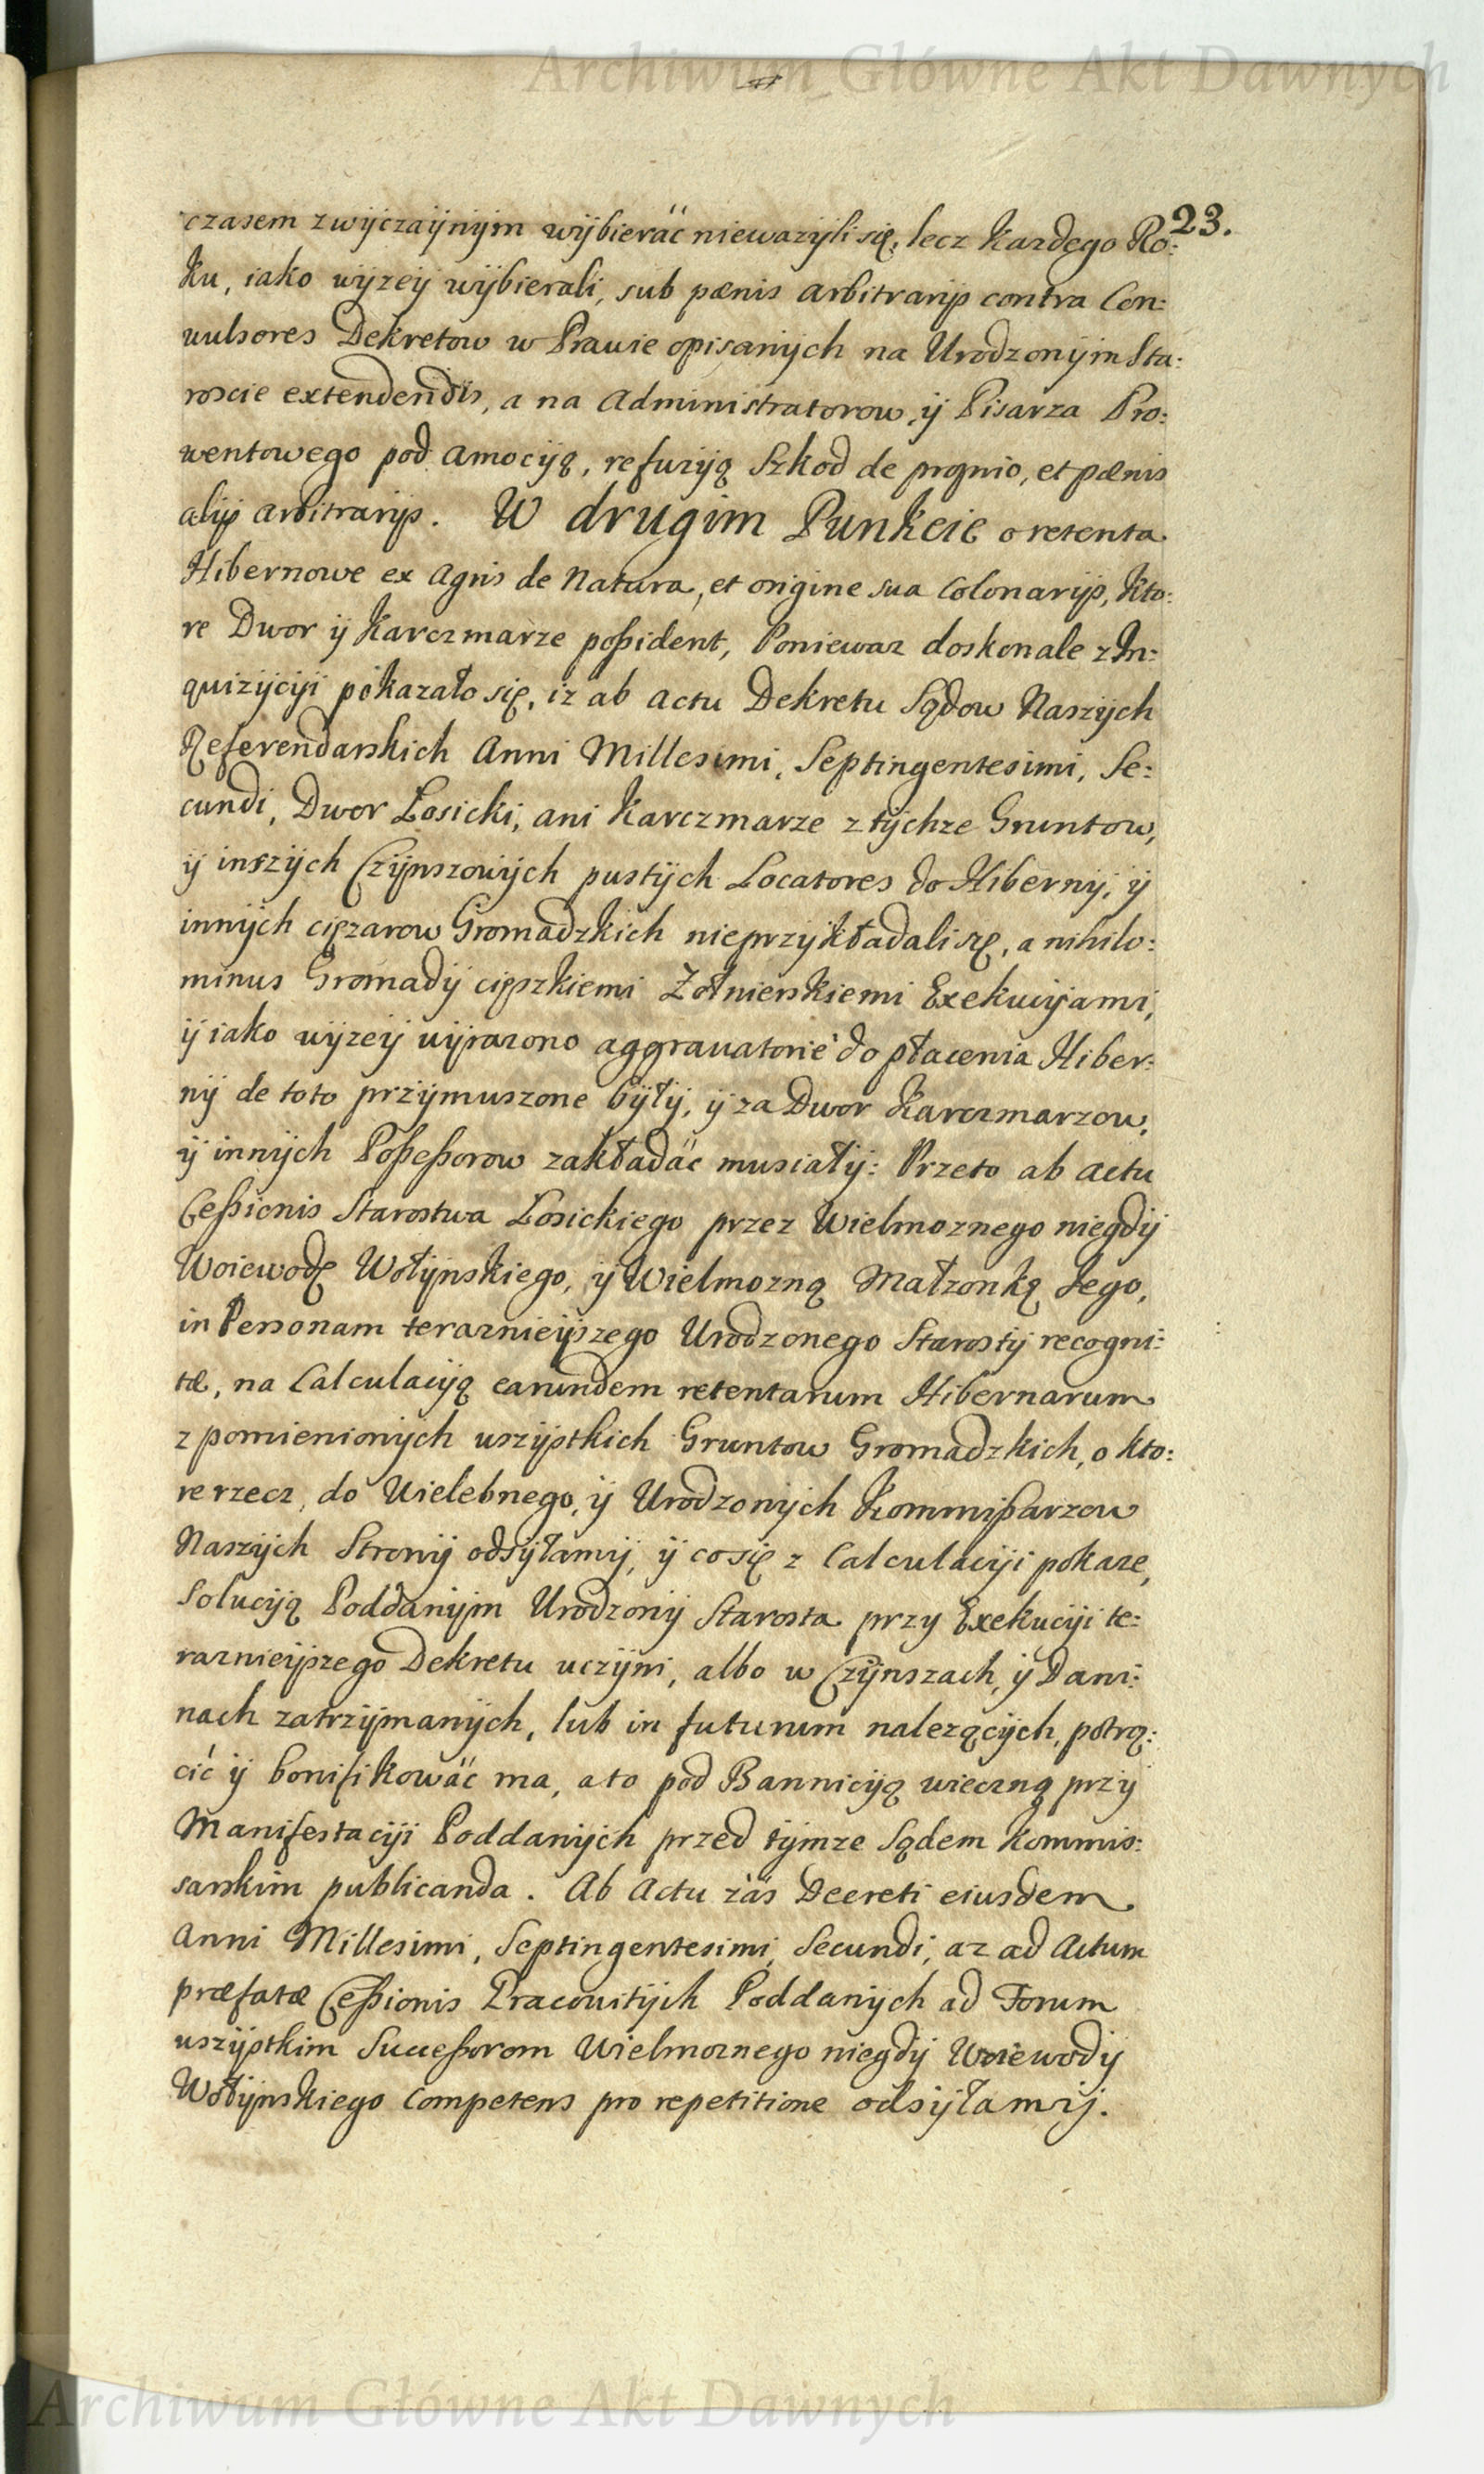 Archiwum Główne Akt Dawnych
23.
czasem zwÿczaÿnÿm wÿbierać nieważÿli się, lecz każdego Ro:
ku, iako wÿzeÿ wÿbierali, sub pænis arbitrarijs contra Con:
uulsores Dekretow w Prawie opisanÿch na UrodzonÿmSta:
roscie extendendis, a na Administratorow, ÿ Pisarza Pro:
wentowego pod amocÿą, refuzÿą Szkod de proprio, et pænis
alijs arbitrarijs. W drugim Punkcie o retenta
Hibernowe ex Agris de Natura, et origine sua Colonarijs, kto:
re Dwor ÿ Karczmarze poßident, Poniewaz doskonale z In:
quizÿcÿi pokazało się, iz ab actu Dekretu Sądow Naszÿch
Referendarskich Anni Millesimi, Septingentesimi, Se:
cundi, Dwor Łosicki, ani Karczmarze z tÿchze Gruntow,
ÿ inszÿch Czÿnszowÿch pustÿch Locatores do Hibernÿ, ÿ
innÿch cięzarow Gromadzkich nieprzÿkładali się, a nihilo:
minus Gromadÿ cięszkiemi Zołnierskiemi Exekucÿami,
ÿ iako wÿzeÿ wÿrazono aggrauatorie do płacenia Hiber:
nÿ de toto przÿmuszone bÿłÿ, ÿ za Dwor Karczmarzow,
ÿ innÿch Poßeßorow zakładać musiałÿ: Przeto ab actu
Ceßionis Starostwa Łosickiego przez Wielmoznego niegdÿ
Woiewodę Wołÿnskiego, ÿ Wielmozną Małzonkę Jego,
in Personam terazniejszego Urodzonego Starostÿ recogni:
tæ, na Calculacÿą earundem retentarum Hibernarum
z pomienionÿch wszÿstkich Gruntow Gromadzkich, o kto:
re rzecz, do Wielebnego, ÿ Urodzonÿch Kommißarzow
Naszÿch Stronÿ odsÿłamÿ, ÿ co się z Calculacÿi pokaze,
Solucÿą Poddanÿm Urodzonÿ Starosta przy Exekucÿi te:
raznieÿszego Dekretu uczÿni, albo w Czÿnszach, ÿ Dani:
nach zatrzÿmanÿch, lub in futurum nalezącÿch, potrą:
cić ÿ bonifikować ma, a to pod Bannicÿą wieczną przÿ
Manifestacÿi Poddanÿch przed tÿmze Sądem Kommis:
sarskim publicanda. Ab Actu zás Decreti eiusdem
Anni Millesimi, Septingentesimi, Secundi, az ad Actum
præfatæ Ceßionis Pracowitÿch Poddanÿch ad Forum
wszÿstkim Succeßorom Wielmoznego niegdÿ Woiewodÿ
Wołÿnskiego Competens pro repetitione odsÿłamÿ.
Archiwum Główne Akt Dawnych